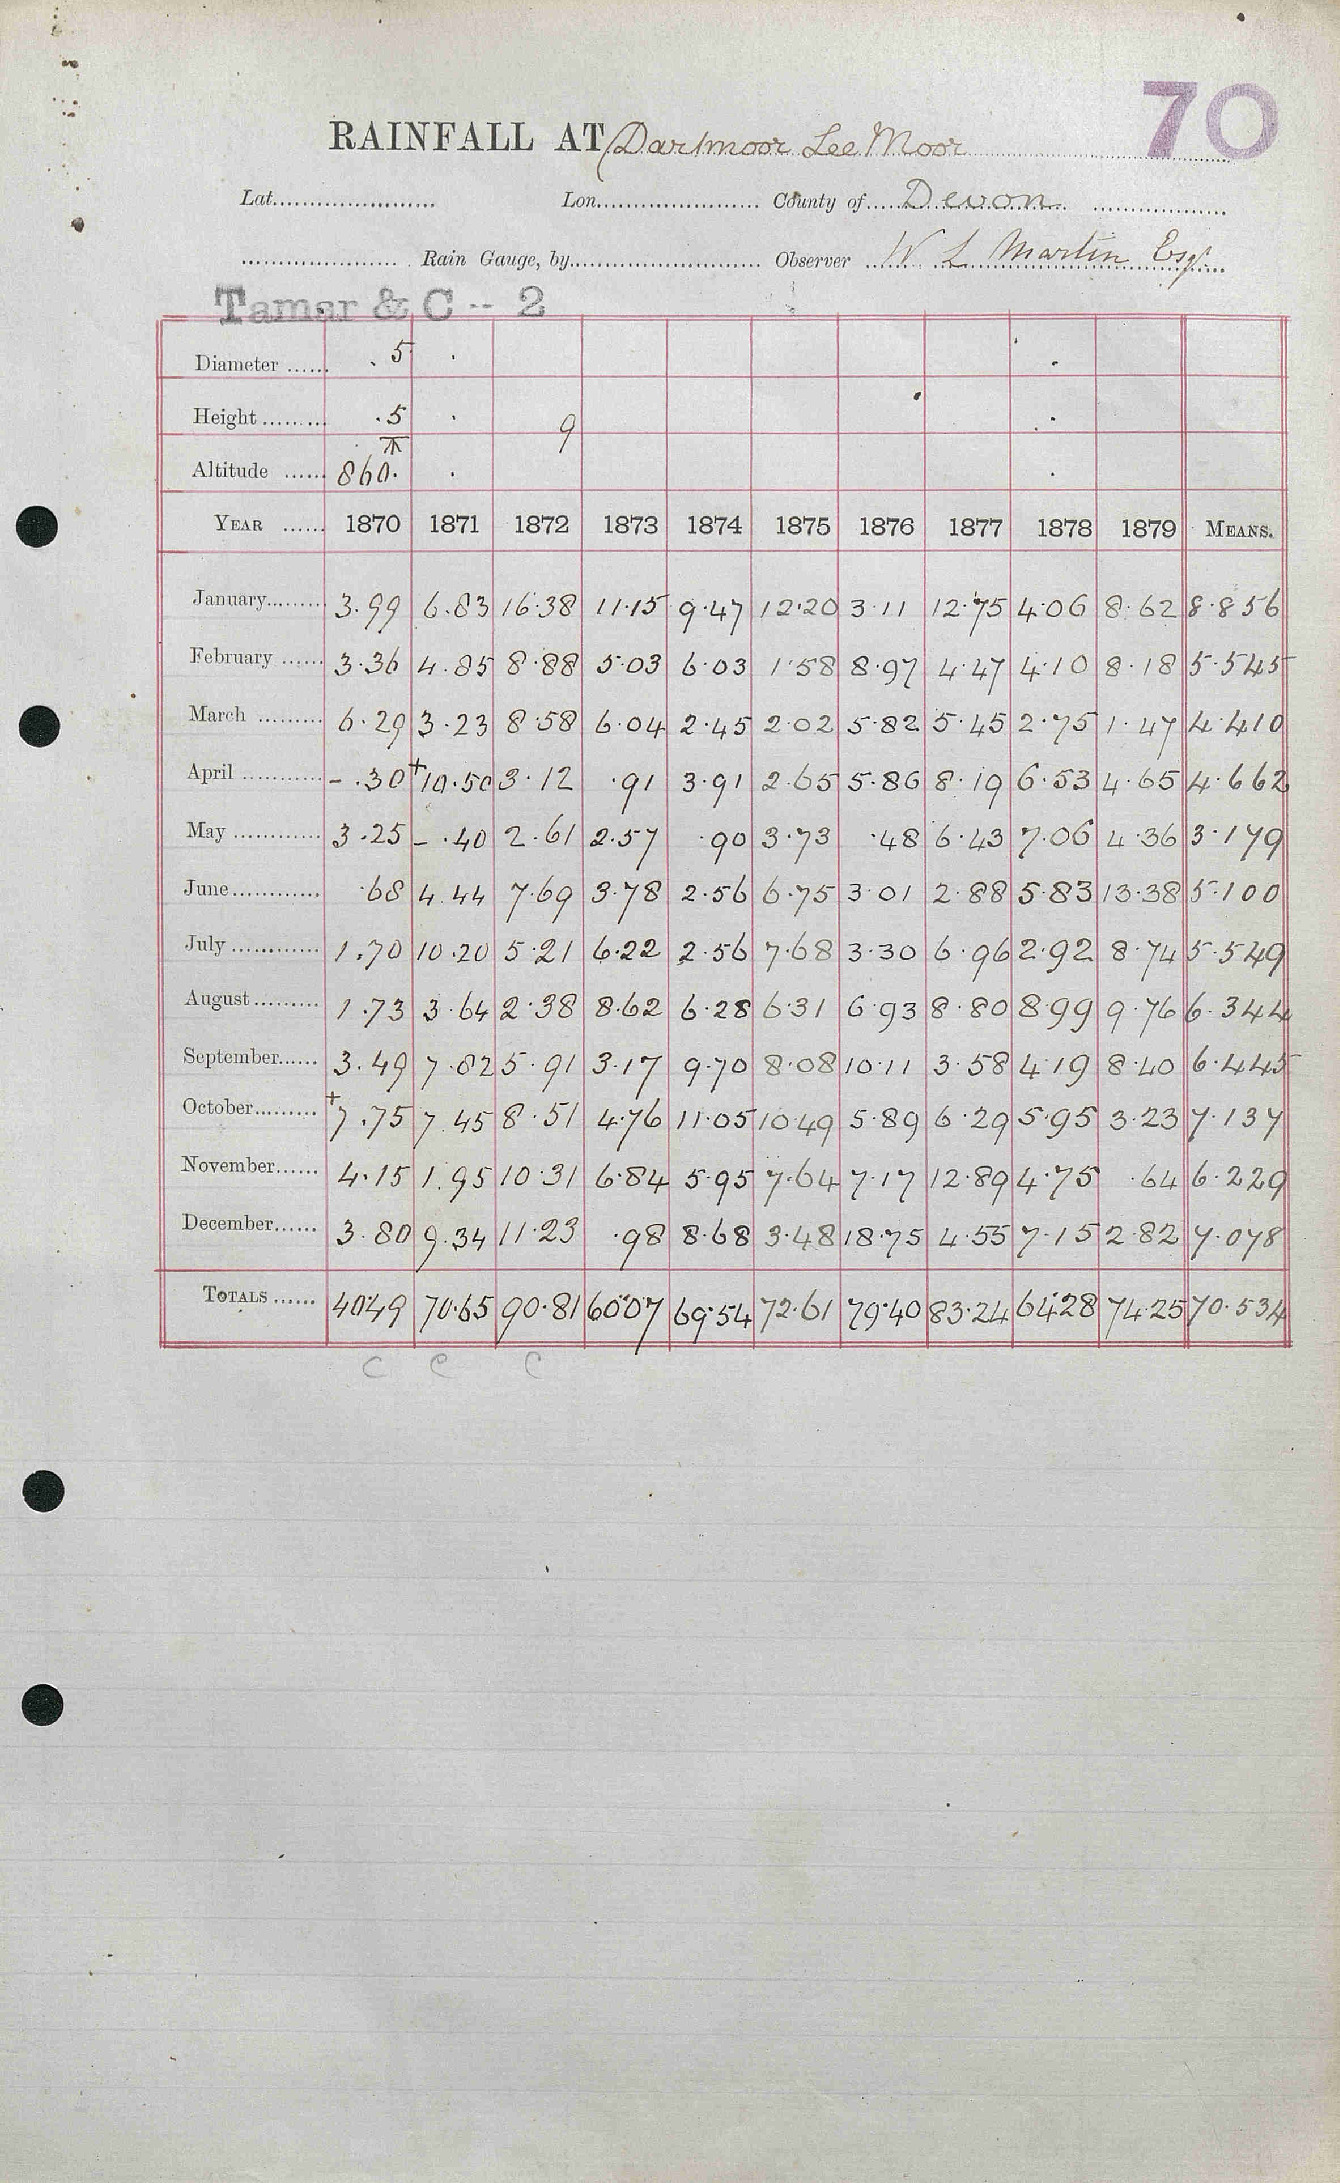 70
RAINFALL AT Dartmoor Lee Moor
Lat. Lon. County of Devon
Rain Gauge, by Observer W L Martin Esqr
Tamar & C -- 2
Diameter ...... .5
Height ......... .5 9
Altitude ...... 860.
YEAR ...... 1870 1871 1872 1873 1874 1875 1876 1877 1878 1879 MEANS.
January......... 3.99 6.83 16.38 11.15 9.47 12.20 3.11 12.75 4.06 8.62 8.856
February ...... 3.36 4.85 8.88 5.03 6.03 1.58 8.97 4.47 4.10 8.18 5.545
March ......... 6.29 3.23 8.58 6.04 2.45 2.02 5.82 5.45 2.75 1.47 4.410
April ............ - .30 +10.50 3.12 .91 3.91 2.65 5.86 8.19 6.53 4.65 4.662
May ............ 3.25 - .40 2.61 2.57 .90 3.73 .48 6.43 7.06 4.36 3.179
June............ .68 4.44 7.69 3.78 2.56 6.75 3.01 2.88 5.83 13.38 5.100
July ............ 1.70 10.20 5.21 6.22 2.56 7.68 3.30 6.96 2.92 8.74 5.549
August ......... 1.73 3.64 2.38 8.62 6.28 6.31 6.93 8.80 8.99 9.76 6.344
September...... 3.49 7.82 5.91 3.17 9.70 8.08 10.11 3.58 4.19 8.40 6.445
October......... +7.75 7.45 8.51 4.76 11.05 10.49 5.89 6.29 5.95 3.23 7.137
November...... 4.15 1.95 10.31 6.84 5.95 7.64 7.17 12.89 4.75 .64 6.229
December...... 3.80 9.34 11.23 .98 8.68 3.48 18.75 4.55 7.15 2.82 7.078
TOTALS ...... 40.49 70.65 90.81 60.07 69.54 72.61 79.40 83.24 64.28 74.25 70.534
C C C